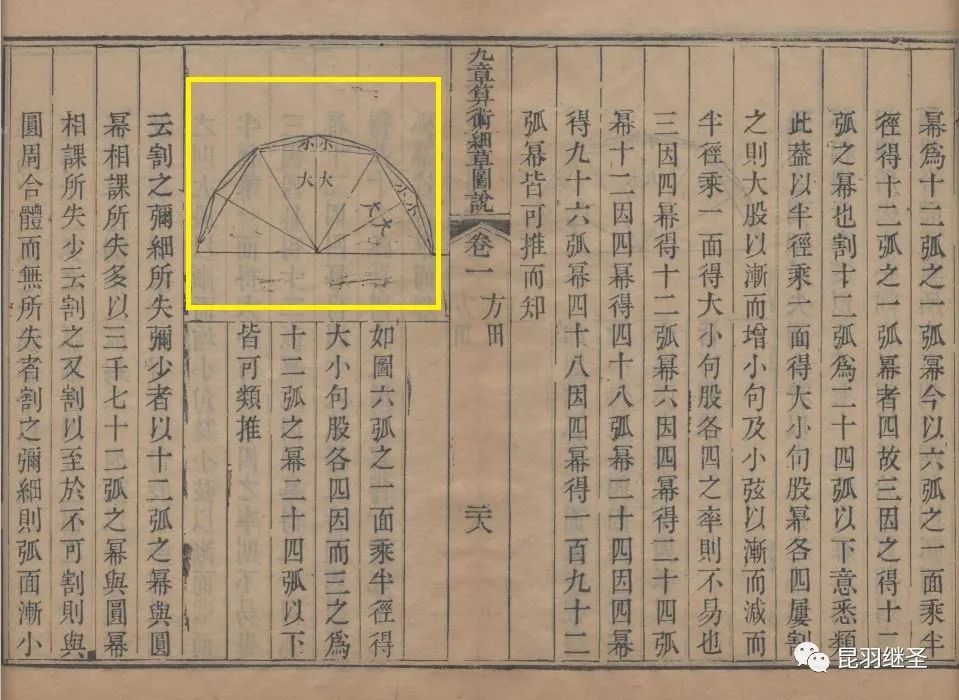 幂爲十二弧之一弧幂今以六弧之一面乘半
徑得十二弧之一弧幂者四故三因之得十二
弧之幂也割十二弧爲二十四弧以下意悉類
此葢以半徑乘面得大小句股幂各四屢割
之則大股以漸而增小句及小弦以漸而減而
半徑乘一面得大小句股各四之率則不易也
三因四幂得十二弧幂六因四幂得二十四弧
幂十二因四幂得四十八弧幂二十四因四幂
得九十六弧幂四十八因四幂得一百九十二
弧幂皆可推而知
九章算術細草圖說
卷一
方田
小小
大大
小小
大大
如圖六弧之一面乘半徑得
大小句股各四因而三之爲
十二弧之幂二十四弧以下
皆可類推
云割之彌細所失彌少者以十二弧之幂與圓
幂相課所失多以三千七十二弧之幂與圓幂
相課所失少云割之又割以至於不可割則與
圓周合體而無所失者割之彌細則弧面漸小
昆羽继圣